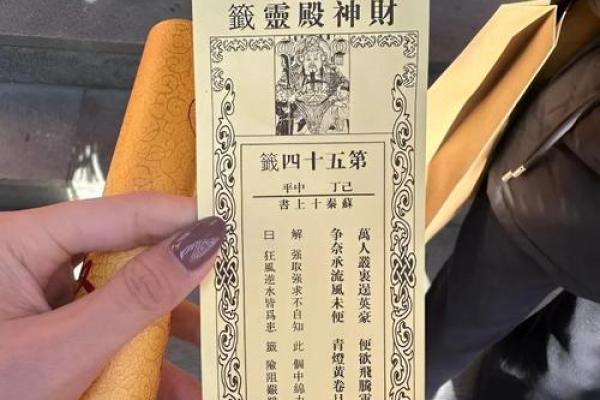 財神殿靈籤
第五十四籤
己丁 中平
蘇秦十上書
萬人叢裏逞英豪 便欲飛騰
争奈承流風未便 青燈黃卷
解 強取強求不自知 此 個中綿
曰 狂風逆水皆爲患 籤 險阻艱